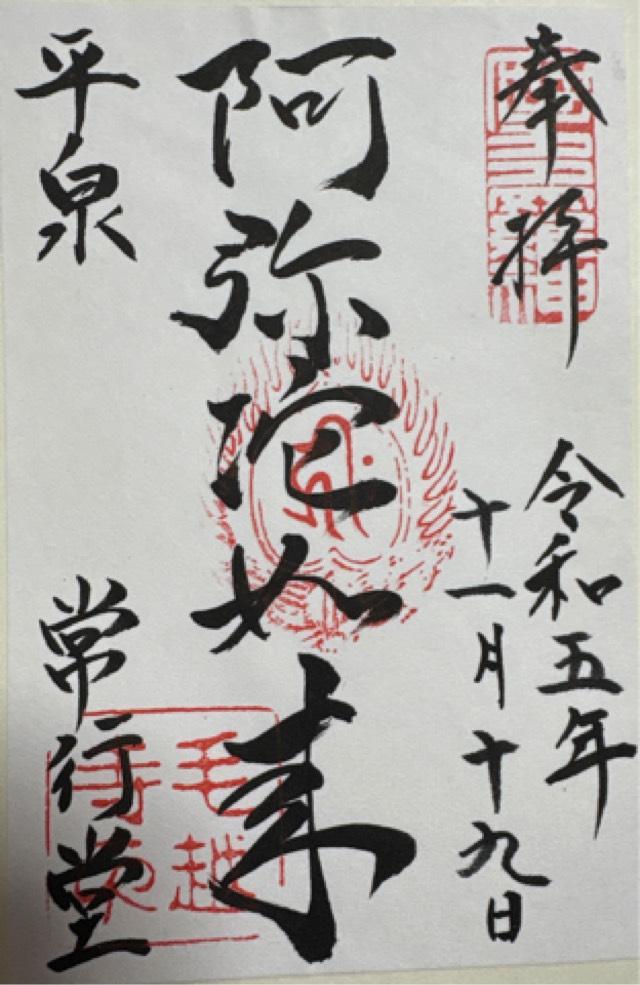 奉拝
令和五年
十一月十九日
阿弥陀如来
平泉
常行堂
毛越
寺